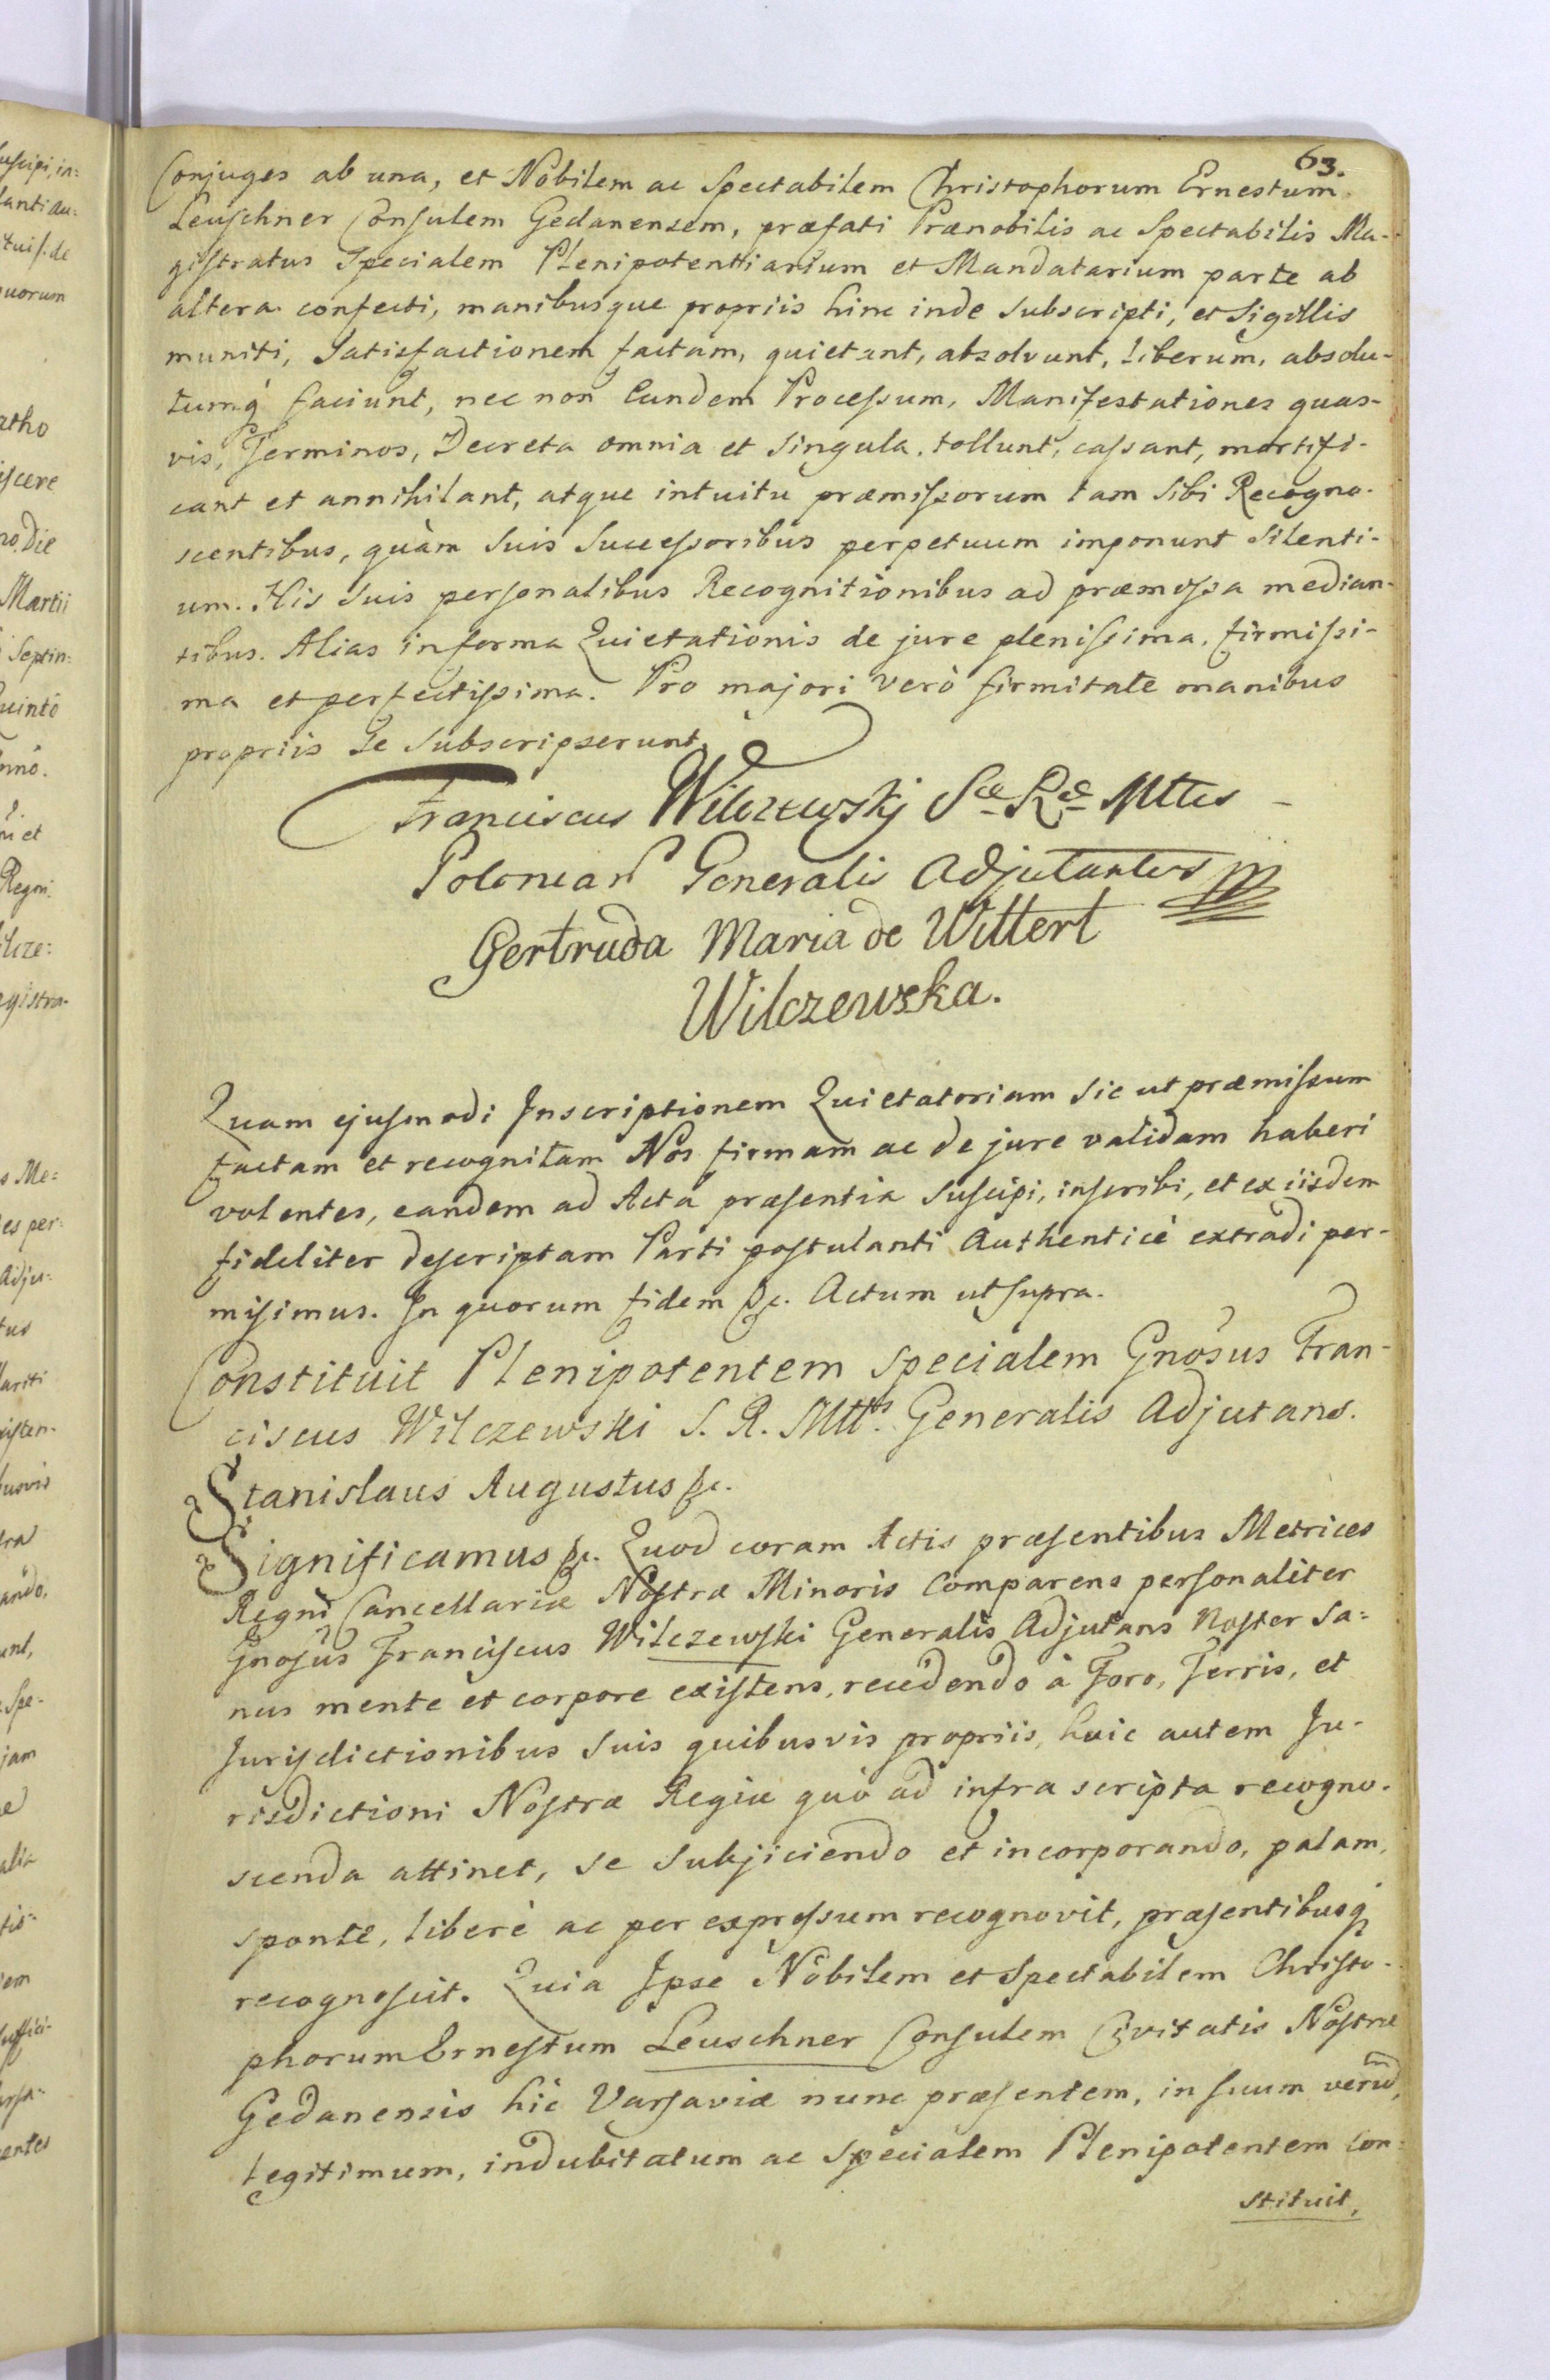 63.
Conjuges ab una, et Nobilem ac Spectabilem Christophorum Ernestum
Leuschner Consulem Gedanensem, præfati Prænobilis ac Spectabilis Ma-
gistratus Specialem Plenipotentiarium et Mandatarium parte ab
altera confecti, manibusque propriis hinc inde subscripti, et Sigillis
muniti, Satisfactionem factam, quietant, absolvunt, liberum, absolu-
tumq́ faciunt, nec non Eundem Processum, Manifestationes quas-
vis, Terminos, Decreta omnia et singula tollunt, cassant, mortifi-
cant et annihilant, atque intuitu præmissorum tam Sibi Recogno-
scentibus, quàm Suis Successoribus perpetuum imponunt Silenti-
um. His Suis personalibus Recognitionibus ad præmissa median-
tibus. Alias in forma Quietationis de jure plenissima, firmissi-
ma et perfectissima. Pro majori verò firmitate manibus
propriis Se Subscripserunt.
Franciscus Wilczewskj Sæ Ræ Mttis
Poloniar Generalis Adjutantes
Gertruda Maria de Wittert
Wilczewska.
Quam ejusmodi Inscriptionem Quietatoriam sic ut præmissum
factam et recognitam Nos firmam ac de jure validam haberi
volentes, eandem ad Acta præsentia suscipi, inscribi, et ex iisdem
fideliter descriptam Parti postulanti Authenticè extradi per-
misimus. In quorum fidem &c. Actum ut supra.
Constituit Plenipotentem specialem Gnosus Fran-
ciscus Wilczewski S. R. Mttis Generalis Adjutans.
Stanislaus Augustus &c.
Significamus &c. Quod coram Actis præsentibus Metrices
Regni Cancellariæ Nostræ Minoris Comparens personaliter
Gnosus Franciscus Wilczewski Generalis Adjutans Noster sa=
nus mente et corpore existens, recedendo à Foro, Terris, et
Jurisdictionibus suis quibusvis propriis, huic autem Ju-
risdictioni Nostræ Regiæ quò ad infra scripta recogno-
scenda attinet, se subjiciendo et incorporando, palam,
sponte, liberè ac per expressum recognovit, præsentibusq́
recognoscit. Quia Ipse Nobilem et Spectabilem Christo-
phorum Ernestum Leuschner Consulem Civitatis Nostræ
Gedanensis hìc Varsaviæ nunc præsentem, in suum verum,
legitimum, indubitatum ac specialem Plenipotentem con-
stituit,